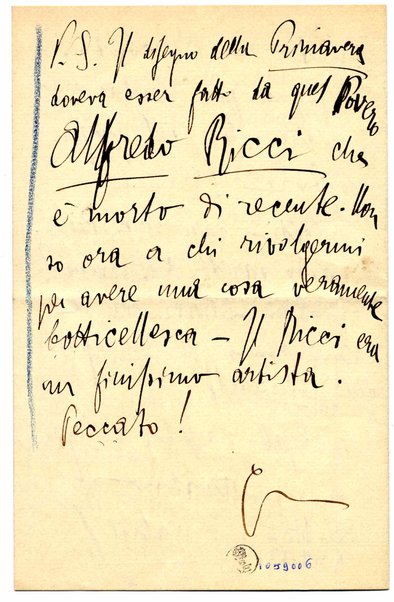 P.S. Il disegno della Primavera
doveva esser fatto da quel povero
Alfredo Ricci che
è morto di recente. Non
so ora a chi rivolgermi
per avere una cosa veramente
botticellesca - Il Ricci era
un finissimo artista.
Peccato!
1059006